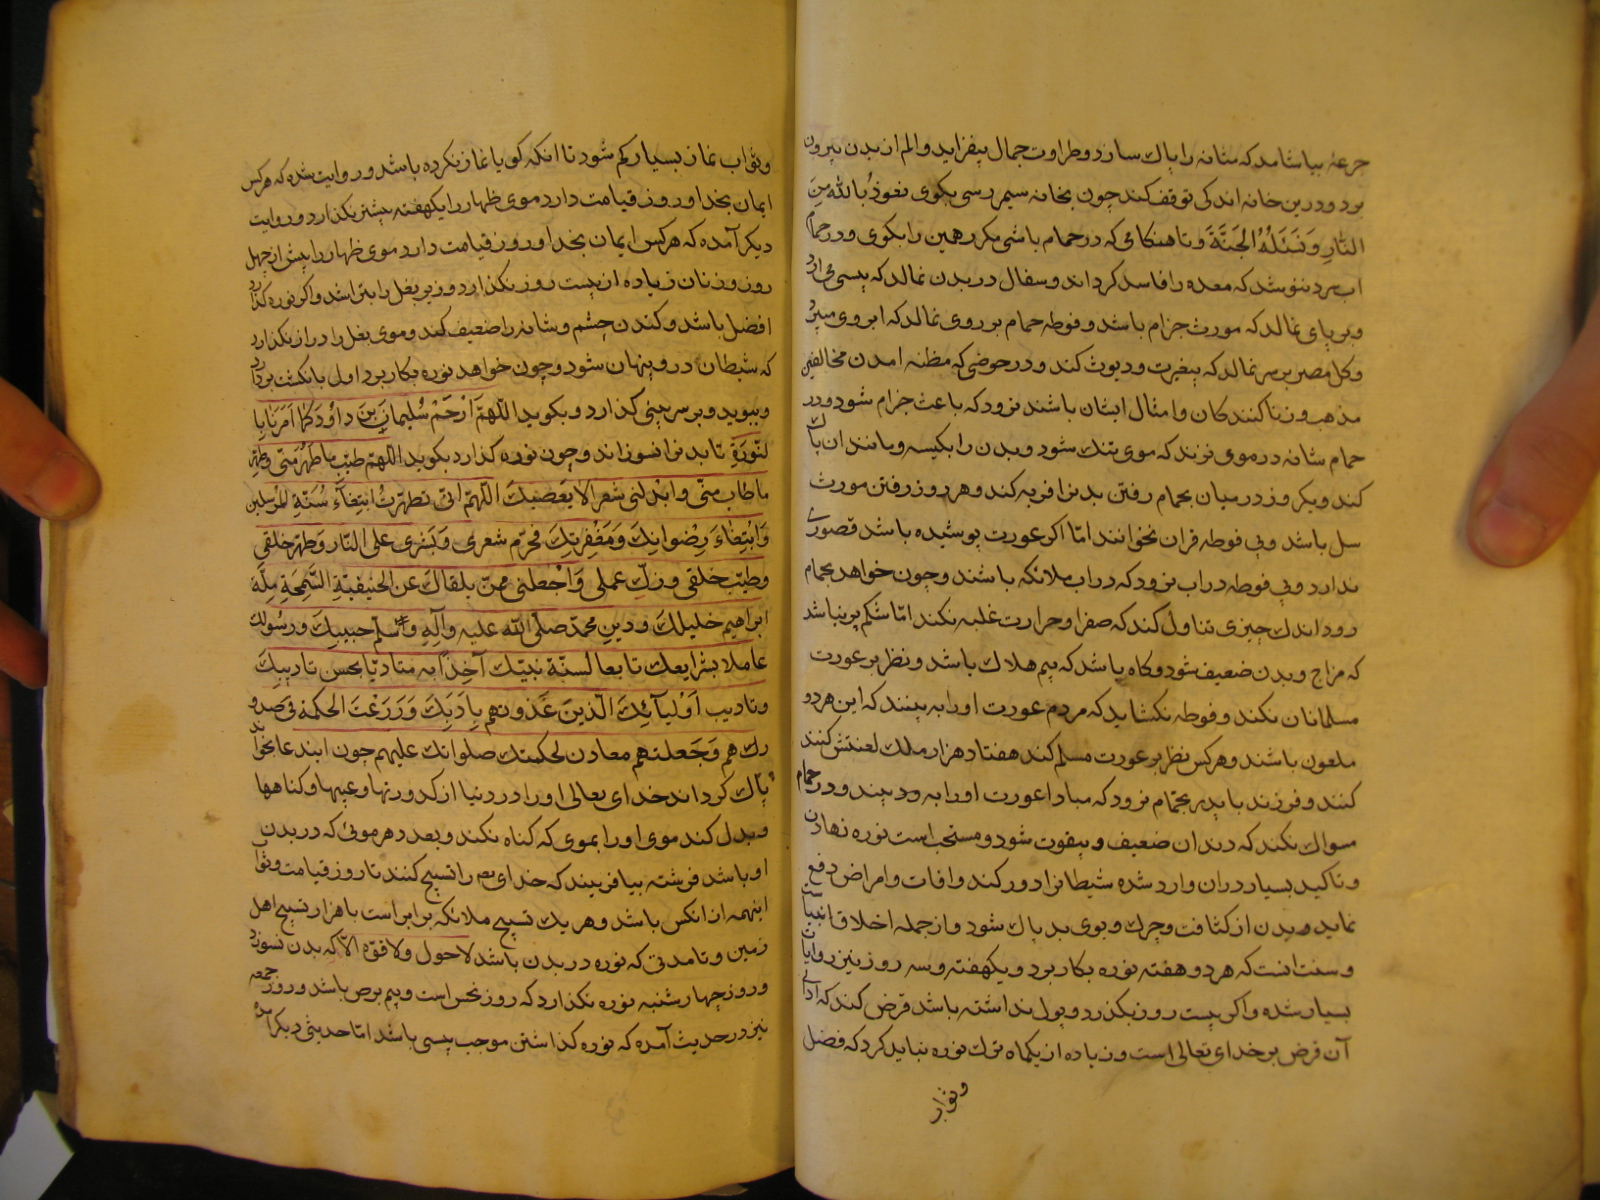 جرعهٔ بیاشامد که مثانه را پاك سازد و طراوت جمال بیفزاید و الم از بدن بیرون
برد و درین خانه اندکی توقف کند چون بخانه سیم رسی بکوی نعوذ بالله من
النار و نسئله الجنة و تا هنکامی که در حمام باشی مکرر همین را بکوی و در حمام
اب سرد ننوشد که معده را فاسد کرداند و سفال در بدن نمالد که پیسی می ارد
و بر پای نمالد که مورث جزام باشد و فوطه حمام بر روی نمالد که ابروی میبرد
و کل مصر بر سر نمالد که بیغیرت و دیوث کند و در حوضی که مظنه امدن مخالفین
مذهب و زناکنندکان و امثال ایشان باشند نرود که باعث جزام شود و در
حمام شانه در موی نزند که موی تنك شود و بدن را بکیسه و مانند ان پاك
کند و یکروز در میان بحمام رفتن بدنرا فربه کند و هر روز رفتن مورث
سل باشد و بی فوطه قران نخوانند امّا اکر عورت پوشیده باشد قصوری
ندارد و بی فوطه دراب نرود که دراب ملائکه باشند و چون خواهد بحمام
رود اندك چیزی تناول کند که صفرا و حرارت غلبه نکند امّا شکم پر نباشد
که مزاج و بدن ضعیف شود و کاه باشد که بیم هلاك باشد و نظر بر عورت
مسلمانان نکند و فوطه نکشاید که مردم عورت او را به بینند که این هر دو
ملعون باشند و هر کس نظر بر عورت مسلم کند هفتاد هزار ملك لعنتش کنند
کنند و فرزند با پدر بحمّام نرود که مبادا عورت او را به بیند و در حمام
مسواك نکند که دندان ضعیف و بیقوت شود و مستحب است نوره نهادن
و تاکید بسیار دران وارد شده شیطانرا دور کند و افات و امراض دفع
نماید و بدن از کثافت و چرك و بوی بد پاك شود و از جمله اخلاق انبیاست
و سنت انست که هر دو هفته نوره بکار برد و یکهفته و بسه روز نیز روایات
بسیار شده و اکر بیست روز بکذرد و پول نداشته باشد قرض کند که ادای
آن قرض بر خدای تعالی است و زیاده از یکماه ترك نوره نباید کرد که فضل
و ثواب
و ثواب نماز بسیار کم شود تا انکه کویا نماز نکرده باشد و روایت شده که هر کس
ایمان بخدا و روز قیامت دارد موی ظهار را یکهفته بیشتر نکذارد و روایت
دیکر آمده که هر کس ایمان بخدا و روز قیامت دارد موی ظهار را بیش از چهل
روز و زنان زیاده از بیست روز نکذارد و زیر بغل را بتراشد و اکر نوره کذارد
افضل باشد و کندن چشم و شانه را ضعیف کند و موی بغل را دراز نکذارد
که شیطان درو پنهان شود و چون خواهد نوره بکار برد اول بانکشت بردارد
و ببوید و بر سر بینی کذارد و بکوید اللهم ارحم سلیمان بن داود کما امرنا با
لنورة تا بدنرا نسوزاند و چون نوره کذارد بکوید اللهم طیب ما طهر منی و طهر
ما طاب منّی و ابدلنی شعرا لا یعصیك اللهم انی تطهرت ابتغاء سنة المرسلین
و ابتغاء رضوانك و مغفرتك فحرّم شعری و بشری علی النار و طهر خلقی
و طیب خلقی و زكّ عملی و اجعلنی ممن یلقاك عن الحنیفیة السمحة ملة
ابراهیم خلیلك و دین محمد صلی الله علیه و آله و سلم حبیبك و رسولك
عاملا بشرایعك تابعا لسنة نبیك آخذا به متادبا بحسن تادیبك
و تادیب اولیآئك الذین غذوتهم بادبك و زرعت الحكمة فی صدو
رهم و جعلتهم معادن لحکمتك صلواتك علیهم چون ایندعا بخواند
پاك کرداند خدای تعالی او را در دنیا از کدورتها و عیبها و کناهها
و بدل کند موی او را بموی که کناه نکند و بعدد هر موئی که در بدن
او باشد فرشته بیافریند که خدای را تسبیح کنند تا روز قیامت و ثواب
اینهمه از انکس باشد و هر یك تسبیح ملائکه برابر است با هزار تسبیح اهل
زمین و تا مدتی که نوره در بدن باشد لا حول و لا قوة الا که بدن نسوزد
و روز چهارشنبه نوره نکذارد که روز نحس است و بیم برص باشد و روز جمعه
نیز در حدیث آمده که نوره کذاشتن موجب پیسی باشد امّا حدیثی دیکر آمده